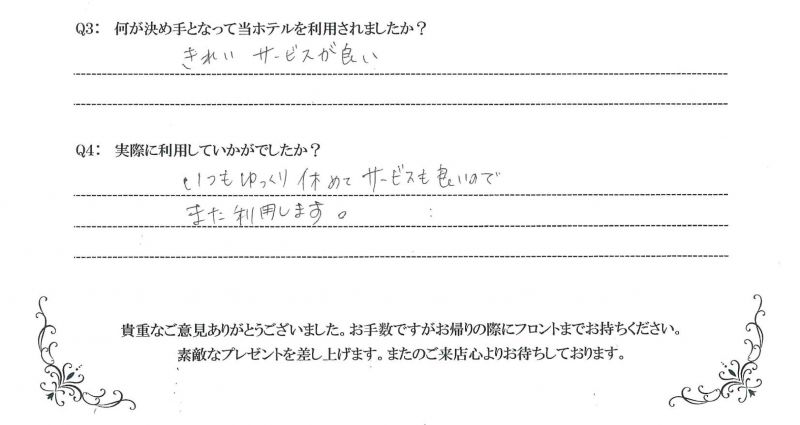 Q3: 何が決め手となって当ホテルを利用されましたか？
きれい サービスが良い
Q4: 実際に利用していかがでしたか？
いつもゆっくり休めてサービスも良いので
また利用します。
貴重なご意見ありがとうございました。お手数ですがお帰りの際にフロントまでお持ちください。
素敵なプレゼントを差し上げます。またのご来店心よりお待ちしております。